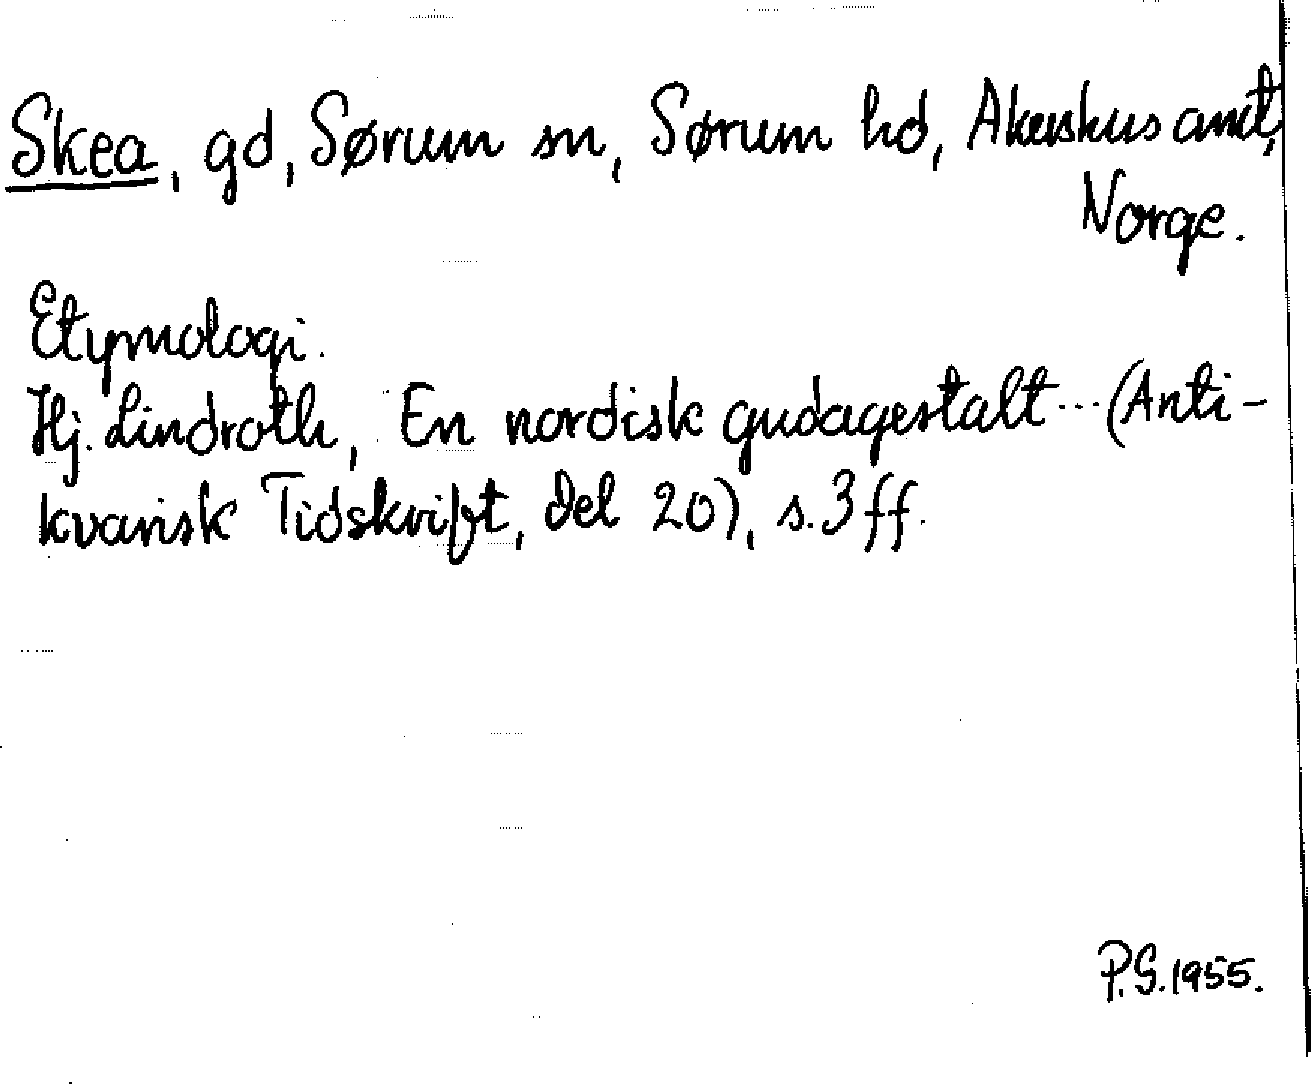 Skea, gd, Sørum sn, Sørum hd, Akershus amt,
Norge.
Etymologi.
Hj. Lindroth, En nordisk gudagestalt... (Anti-
kvarisk Tidskrift, del 20), s. 3 ff.
P.S. 1955.